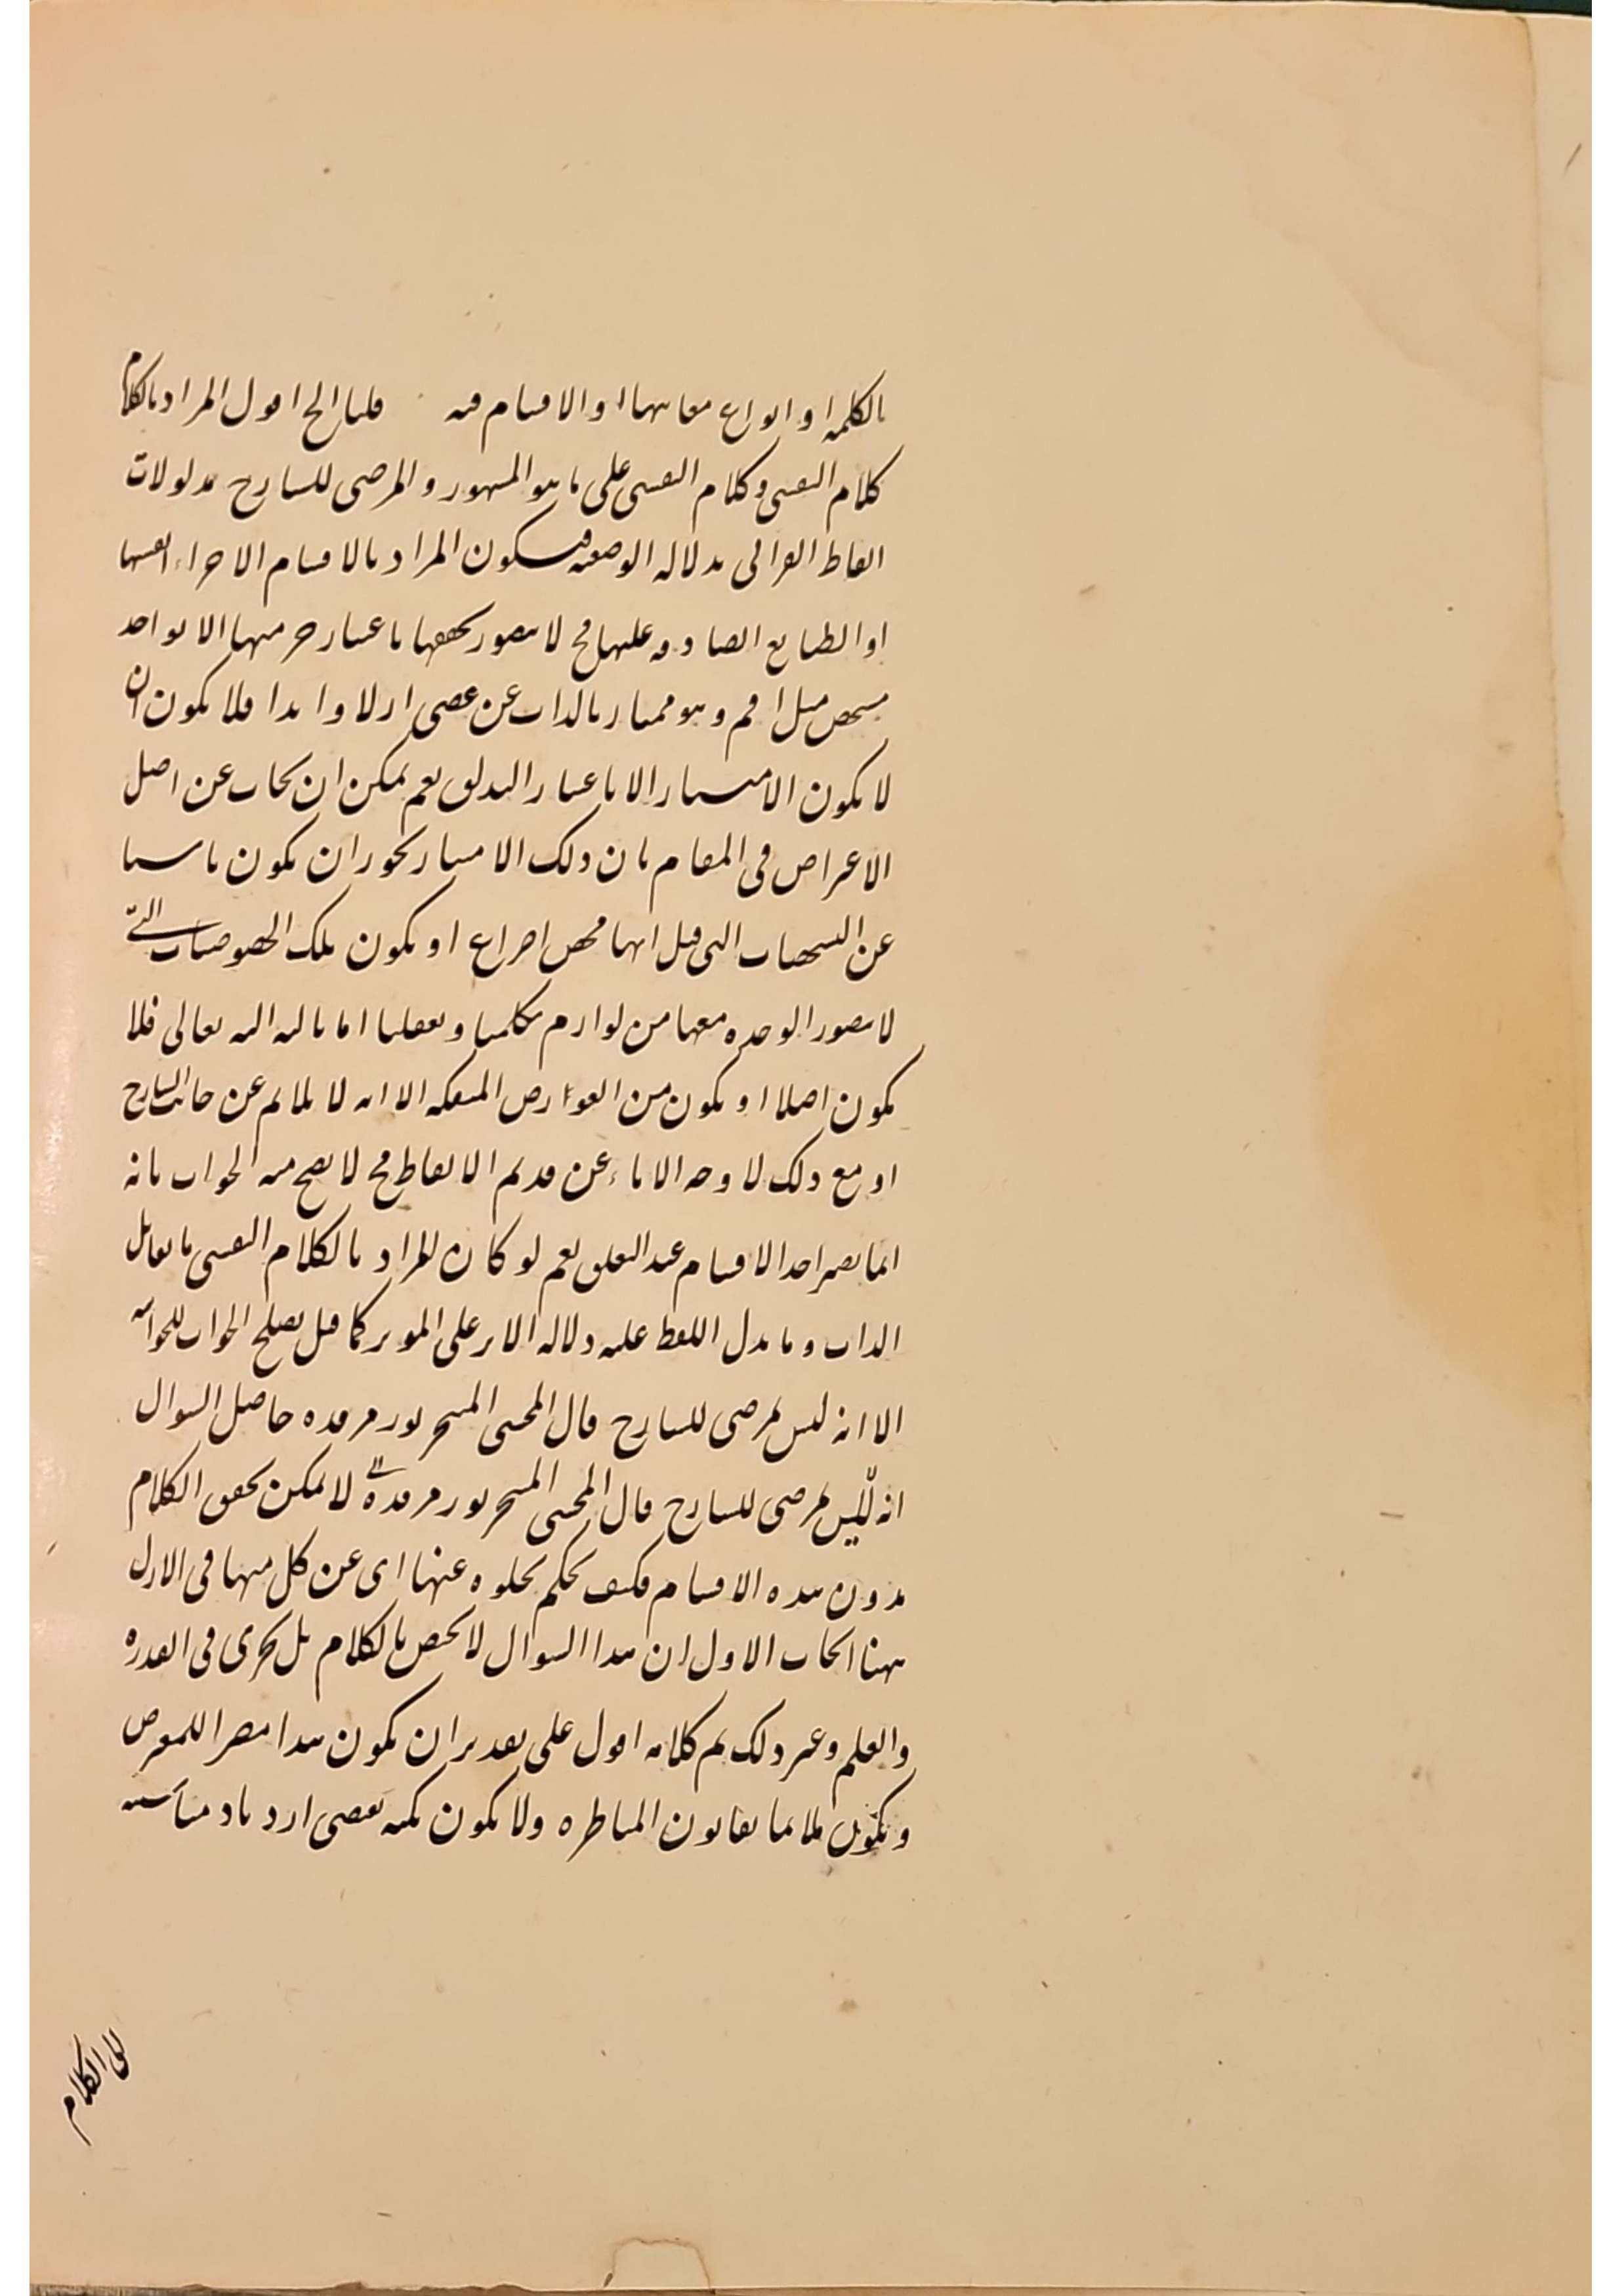 بالكلمة او انواع معانيها او الاقسام فيه قلنا الخ اقول المراد بالكلام
كلام النفسي وكلام النفسي على ما هو المشهور والمرضي للشارح مدلولات
الفاظ القرانى بدلالة الوضعية فيكون المراد بالاقسام الاجزاء انفسها
او الطبايع الصادقة عليها فح لا يتصور تحققها باعتبار جز منها الا بواحد
مشخص مثل اقم وهو ممتاز بالذات عن عصى ازلا وابدا فلا يكون ان
لا يكون الامتياز الا باعتبار التعلق نعم يمكن ان يجاب عن اصل
الاعتراض فى المقام بان ذلك الامتياز يجوز ان يكون ناشيا
عن التشخصات التى قيل انها محض اختراع او يكون تلك الخصوصيات التى
لا يتصور الوحدة معها من لوازم تكلمنا وتعقلنا اما بالنسبة اليه تعالى فلا
يكون اصلا او يكون من العوارض المنفكة الا انه لا يلايم عن جانب الشارح
او مع ذلك لا وجه الاباء عن قدم الالفاظ فح لا يصح منه الجواب بانه
انما يصير احد الاقسام عند التعلق نعم لو كان المراد بالكلام النفسي ما يقابل
الذات وما يدل اللفظ عليه دلالة الاثر على المؤثر كما قيل يصلح الجواب للجوابية
الا انه ليس بمرضي للشارح قال المحشى المتبحر نور مرقده حاصل السوال
انه ليس بمرضي للشارح قال المحشى المتبحر نور مرقده لا يمكن تحقق الكلام
بدون هذه الاقسام فكيف يحكم بخلوه عنها اى عن كل منها فى الازل
ههنا ابحاث الاول ان هذا السوال لا يختص بالكلام بل يجرى فى القدرة
والعلم وغير ذلك تم كلامه اقول على تقدير ان يكون هذا مضرا للمعترض
ويكون ملايما بقانون المناظرة ولا يكون نكتة تقضى ازدياد مناسبة
الكلام